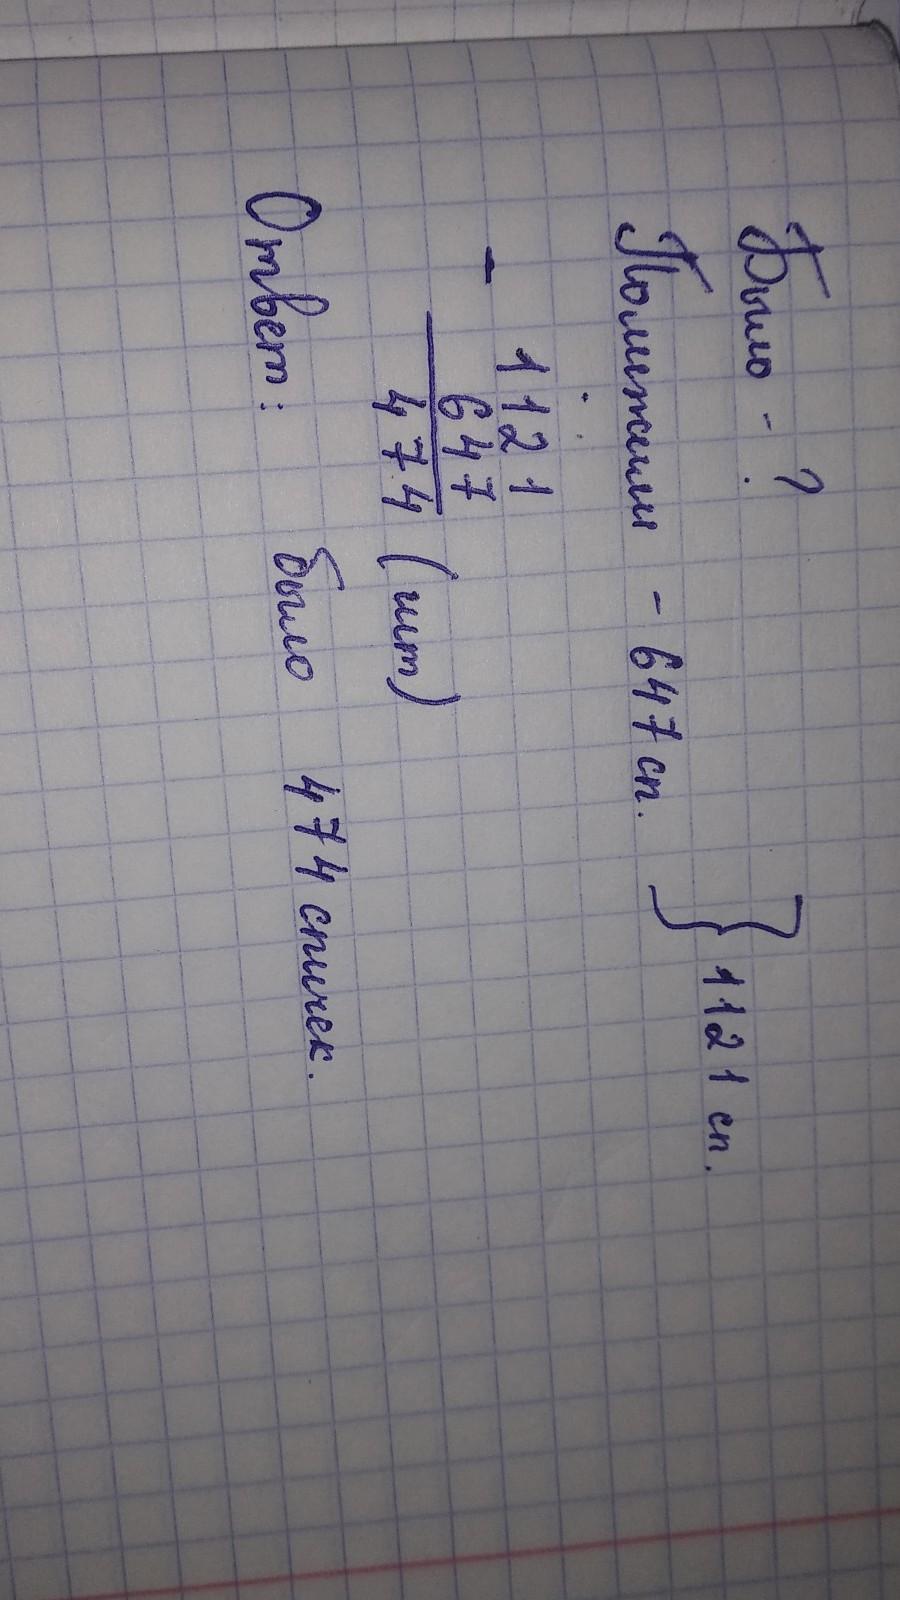 Было - ?
Положили - 647 сп. } 1121 сп.
- 1121
647
474 (шт)
Ответ: было 474 спичек.